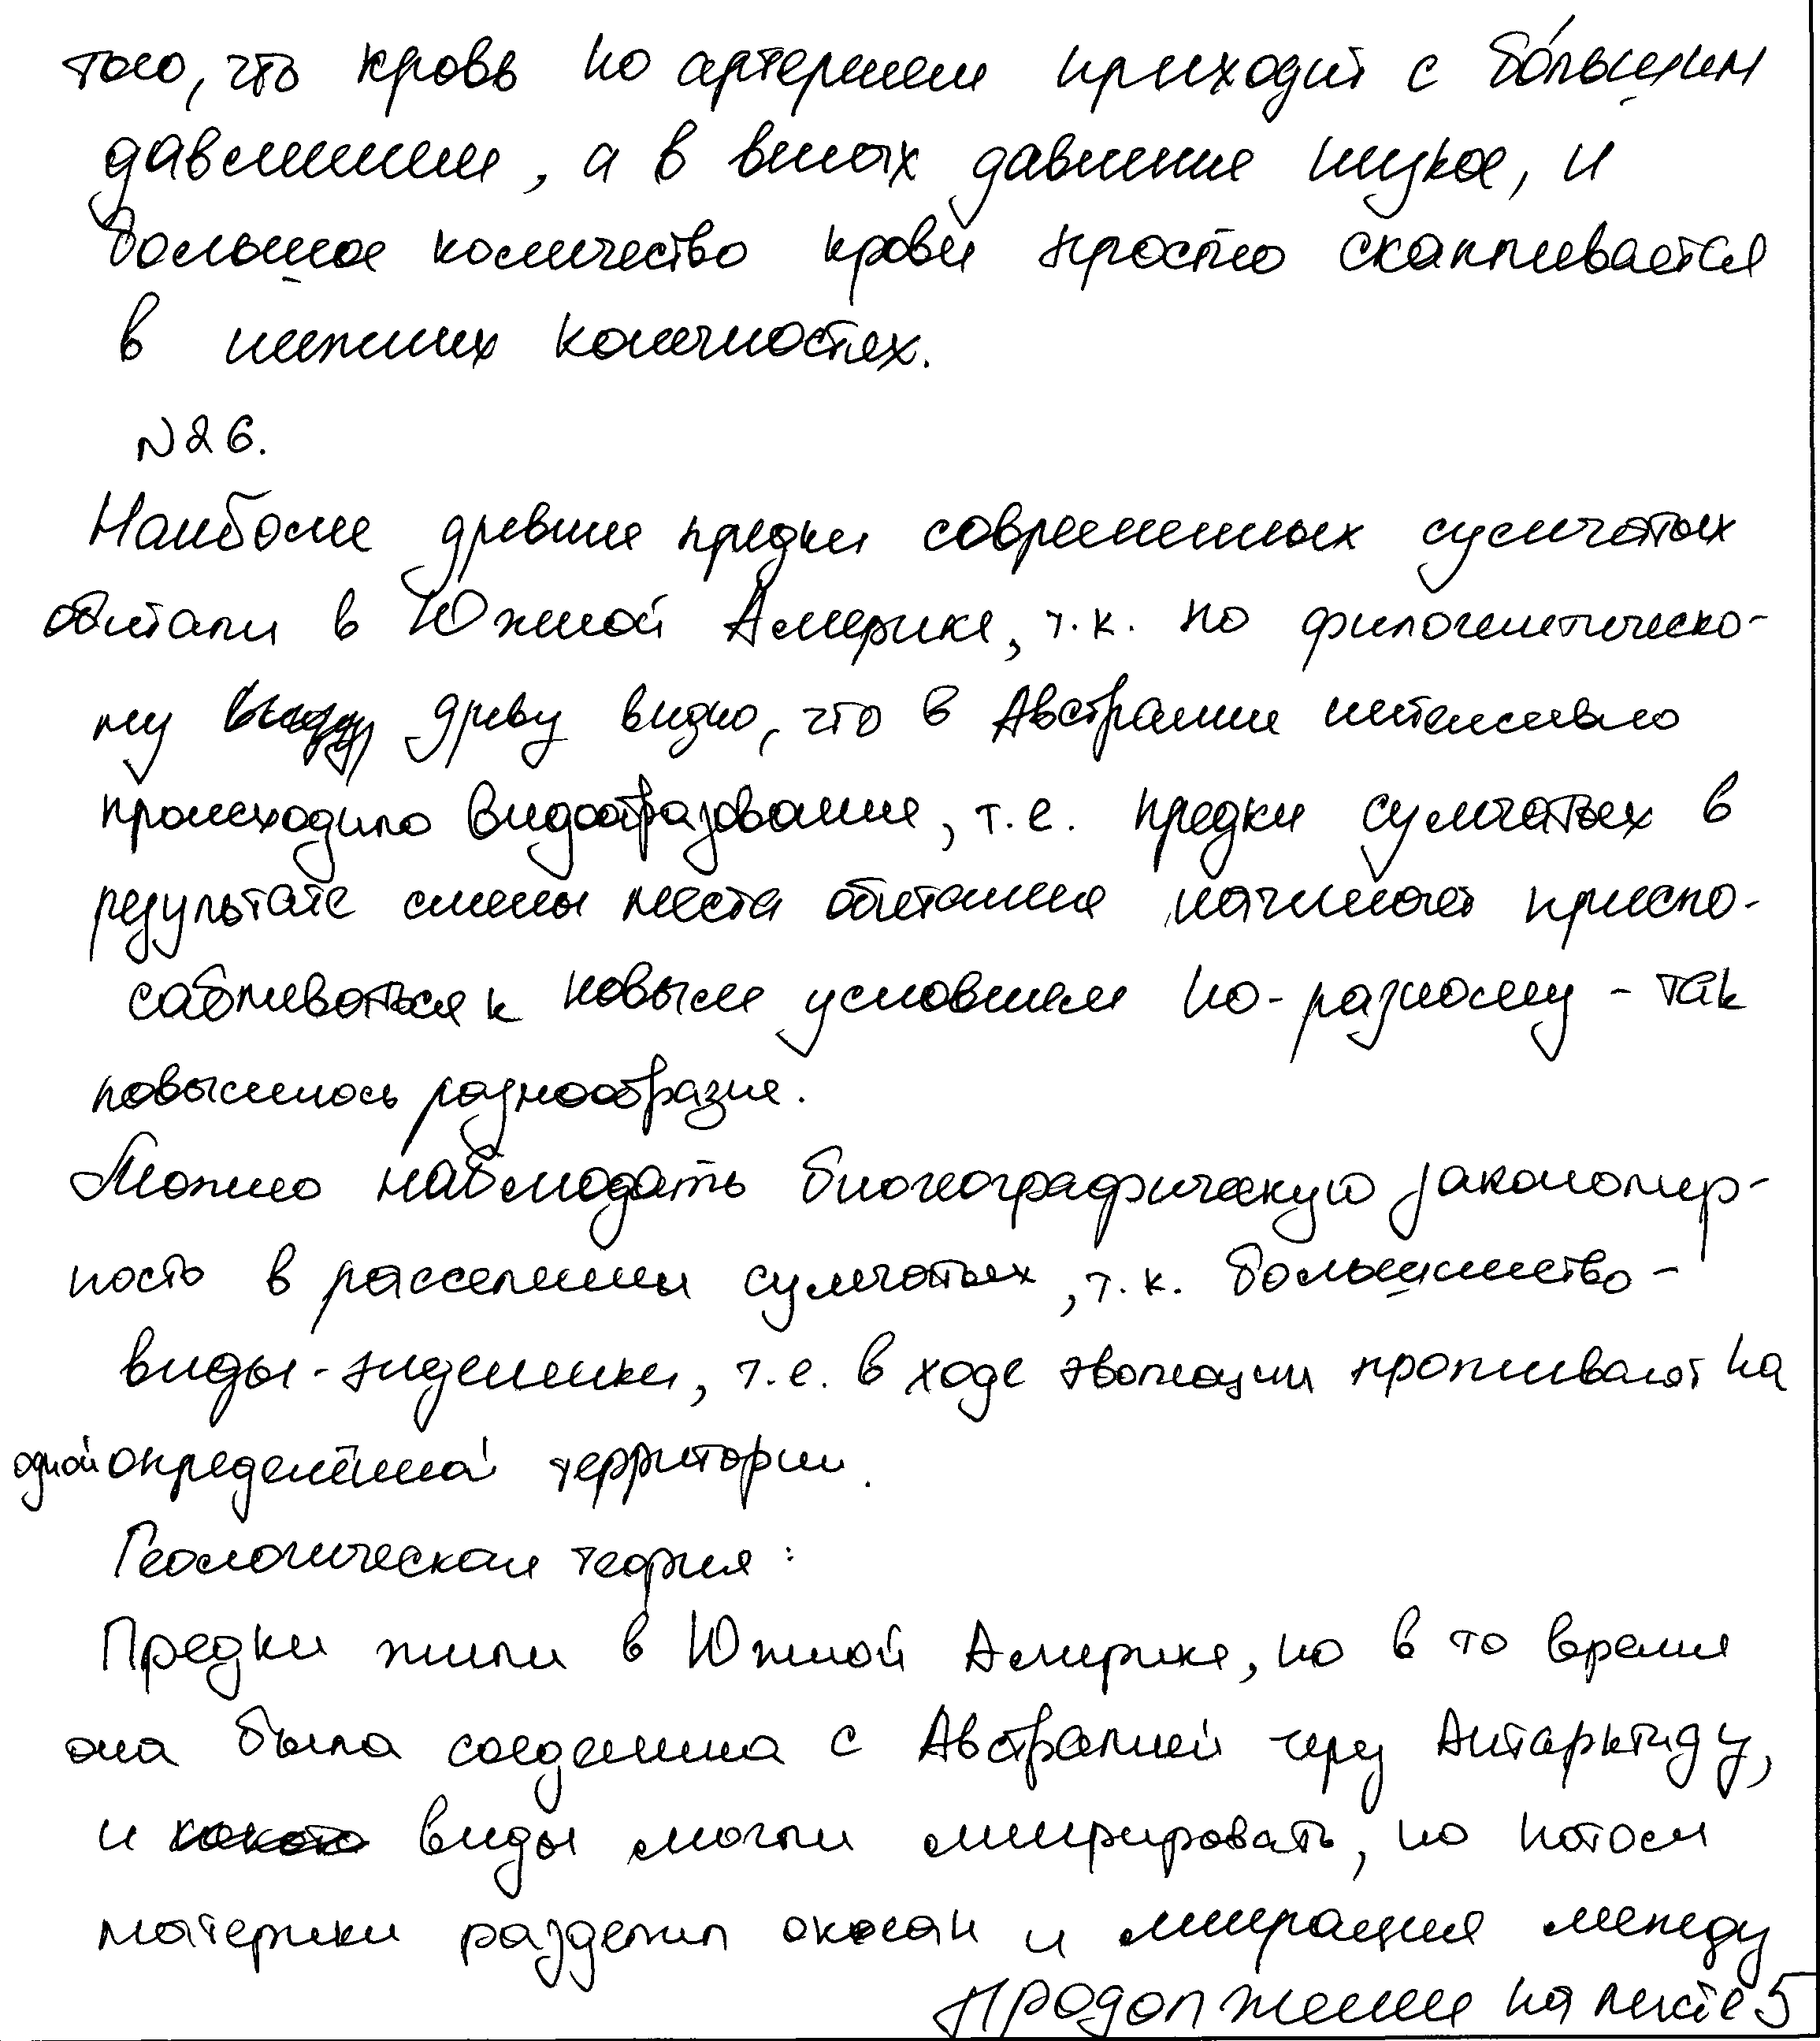 того, что кровь по артериям приходит с бо́льшим
давлением, а в венах давление низкое, и
большое количество крови просто скапливается
в нижних конечностях.
№26.
Наиболее древние предки современных сумчатых
обитали в Южной Америке, т.к. по филогенетическо-
му древу видно, что в Австралии интенсивно
происходило видообразование, т.е. предки сумчатых в
результате смены места обитания начинают приспо-
сабливаться к новым условиям по-разному - так
повысилось разнообразие.
Можно наблюдать биогеографическую закономер-
ность в расселении сумчатых, т.к. большинство -
виды-эндемики, т.е. в ходе эволюции проживают на
одной определённой территории.
Геологическая теория:
Предки жили в Южной Америке, но в то время
она была соединена с Австралией через Антарктиду,
и виды могли мигрировать, но потом
материки разделил океан и миграция между
Продолжение на листе 5